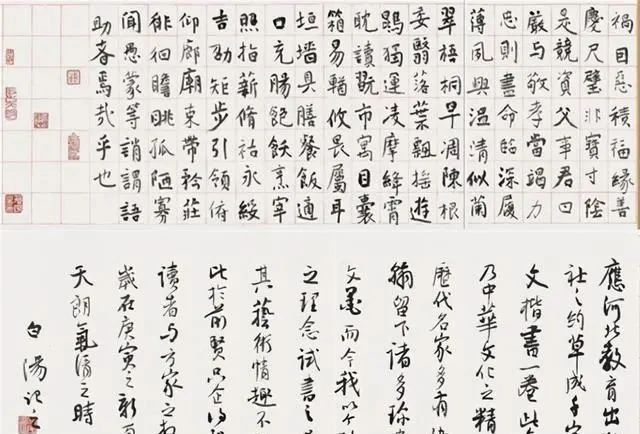 祸因惡積福緣善
慶尺璧非寶寸陰
是競資父事君曰
嚴与敬孝當竭力
忠則盡命臨深履
薄夙興温凊似蘭
翠梧桐早凋陳根
委翳落葉飄摇遊
鵾獨運凌摩絳霄
耽讀翫市寓目囊
箱易輶攸畏屬耳
垣墙具膳餐飯適
口充腸飽飫烹宰
照指薪脩祜永綏
吉劭矩步引領俯
仰廊廟束帶矜莊
徘徊瞻眺孤陋寡
聞愚蒙等誚謂語
助者焉哉乎也
應河北教育出
社之約草成千字
文楷書一卷此
乃中華文化之精
歷代名家多有
留下諸多珍
文墨而今我以
之理念試書之
其藝術情趣不
此於前賢只企
讀者与方家之
歲在庚寅之新
天朗氣清之時
白陽記之